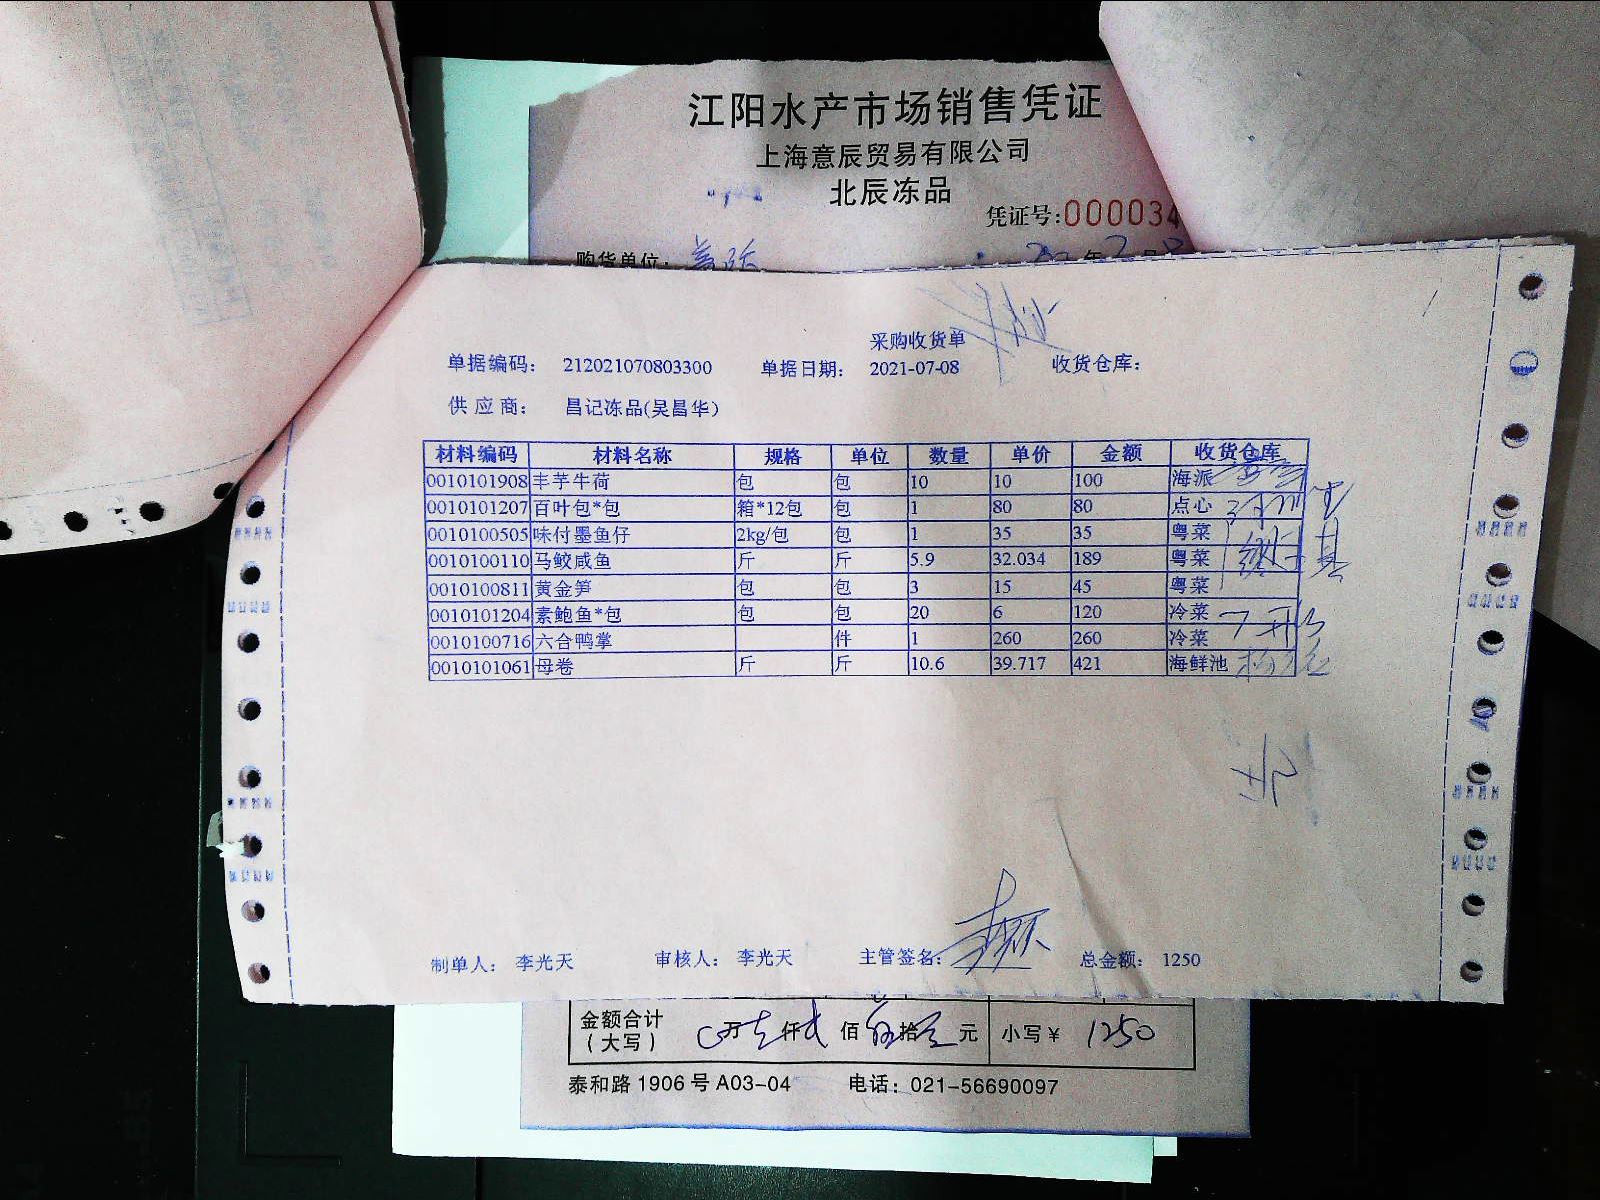 江阳水产市场销售凭证
上海意辰贸易有限公司
北辰冻品
凭证号:000034
购货单位:
采购收货单
单据编码: 212021070803300 单据日期: 2021-07-08 收货仓库:
供应商: 昌记冻品(吴昌华)
材料编码 材料名称 规格 单位 数量 单价 金额 收货仓库
0010101908 丰芋牛荷 包 包 10 10 100 海派
0010101207 百叶包*包 箱*12包 包 1 80 80 点心
0010100505 味付墨鱼仔 2kg/包 包 1 35 35 粤菜
0010100110 马鲛咸鱼 斤 斤 5.9 32.034 189 粤菜
0010100811 黄金笋 包 包 3 15 45 粤菜
0010101204 素鲍鱼*包 包 包 20 6 120 冷菜
0010100716 六合鸭掌 件 1 260 260 冷菜
0010101061 母卷 斤 斤 10.6 39.717 421 海鲜池
制单人: 李光天 审核人: 李光天 主管签名: 总金额: 1250
金额合计 万 仟 佰 拾 元 小写¥ 1250
(大写)
泰和路1906号A03-04 电话: 021-56690097